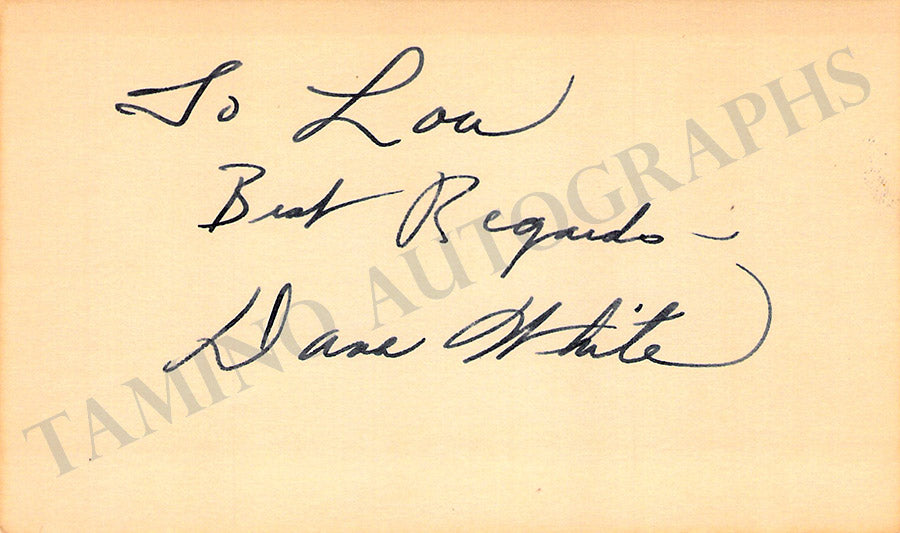 To Lou
Best Regards -
Dana White
TAMINO AUTOGRAPHS